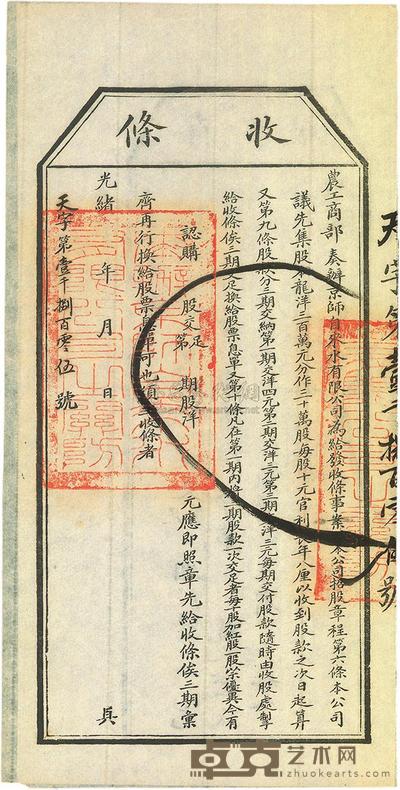 收條
農工商部奏辦京師自來水有限公司為給發收條事案照本公司招股章程第六條本公司
議先集股本龍洋三百萬元分作三十萬股每股十元官利長年八厘以收到股款之次日起算
又第九條股款分三期交納第一期交洋四元第二期交洋三元第三期交洋三元每期交付股款隨時由收股處掣
給收條俟三期交足換給股票息單又第十條凡在第一期內將三期股款一次交足者每十股加紅股一股以示優異今有
認購 股交第 期股洋 元應即照章先給收條俟三期彙
足
齊再行換給股票息單可也須至收條者
光緒 年 月 日 具
天字第壹千捌百零伍號
天字第壹千捌百零伍號
卓克艺术网
zhuokearts.com